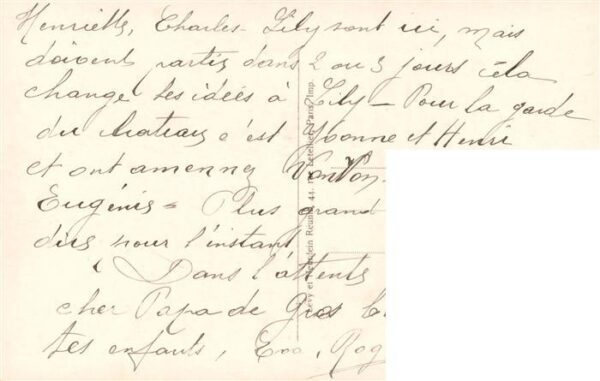 Henriette, Charles - Lily sont ici, mais
doivent partir dans 2 ou 3 jours cela
change les idées à Lily - Pour la garde
du chateau c'est Yvonne et Henri
et ont amenny VonVon
Eugénie - Plus grand
dire pour l'instant
Dans l'attente
cher Papa de Gros
tes enfants, Eva, Rog
Levy et Neurdein Réunis 44, rue Letellier, Paris Imp.